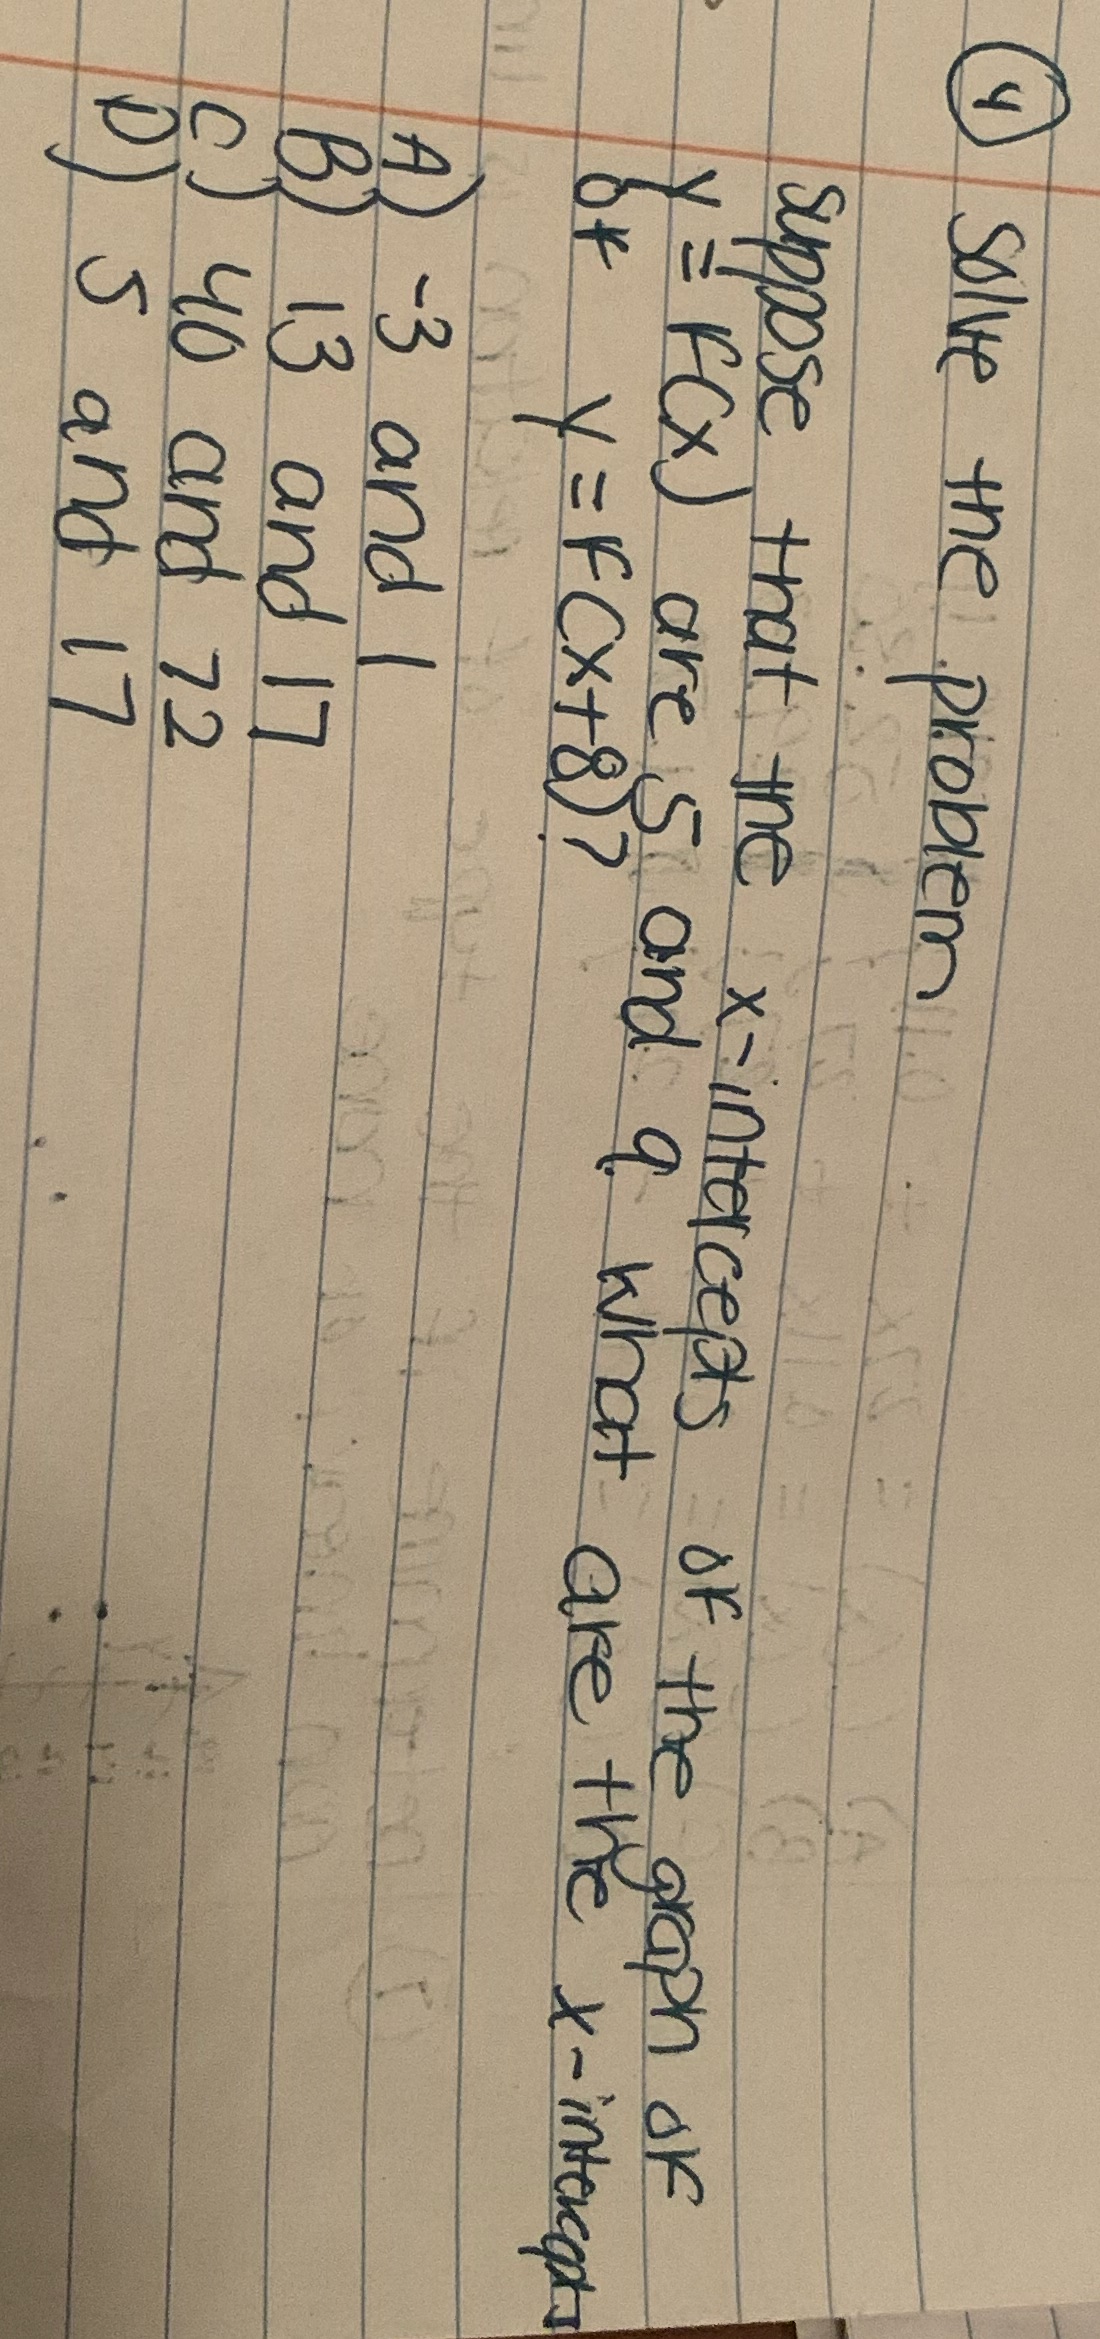 4 Solve the problem
suppose that the x-intercepts of the graph of
y = f(x) are 5 and 9. What are the x-intercepts
of y = f(x+8)?
A) -3 and 1
B) 13 and 17
C) 40 and 72
D) 5 and 17